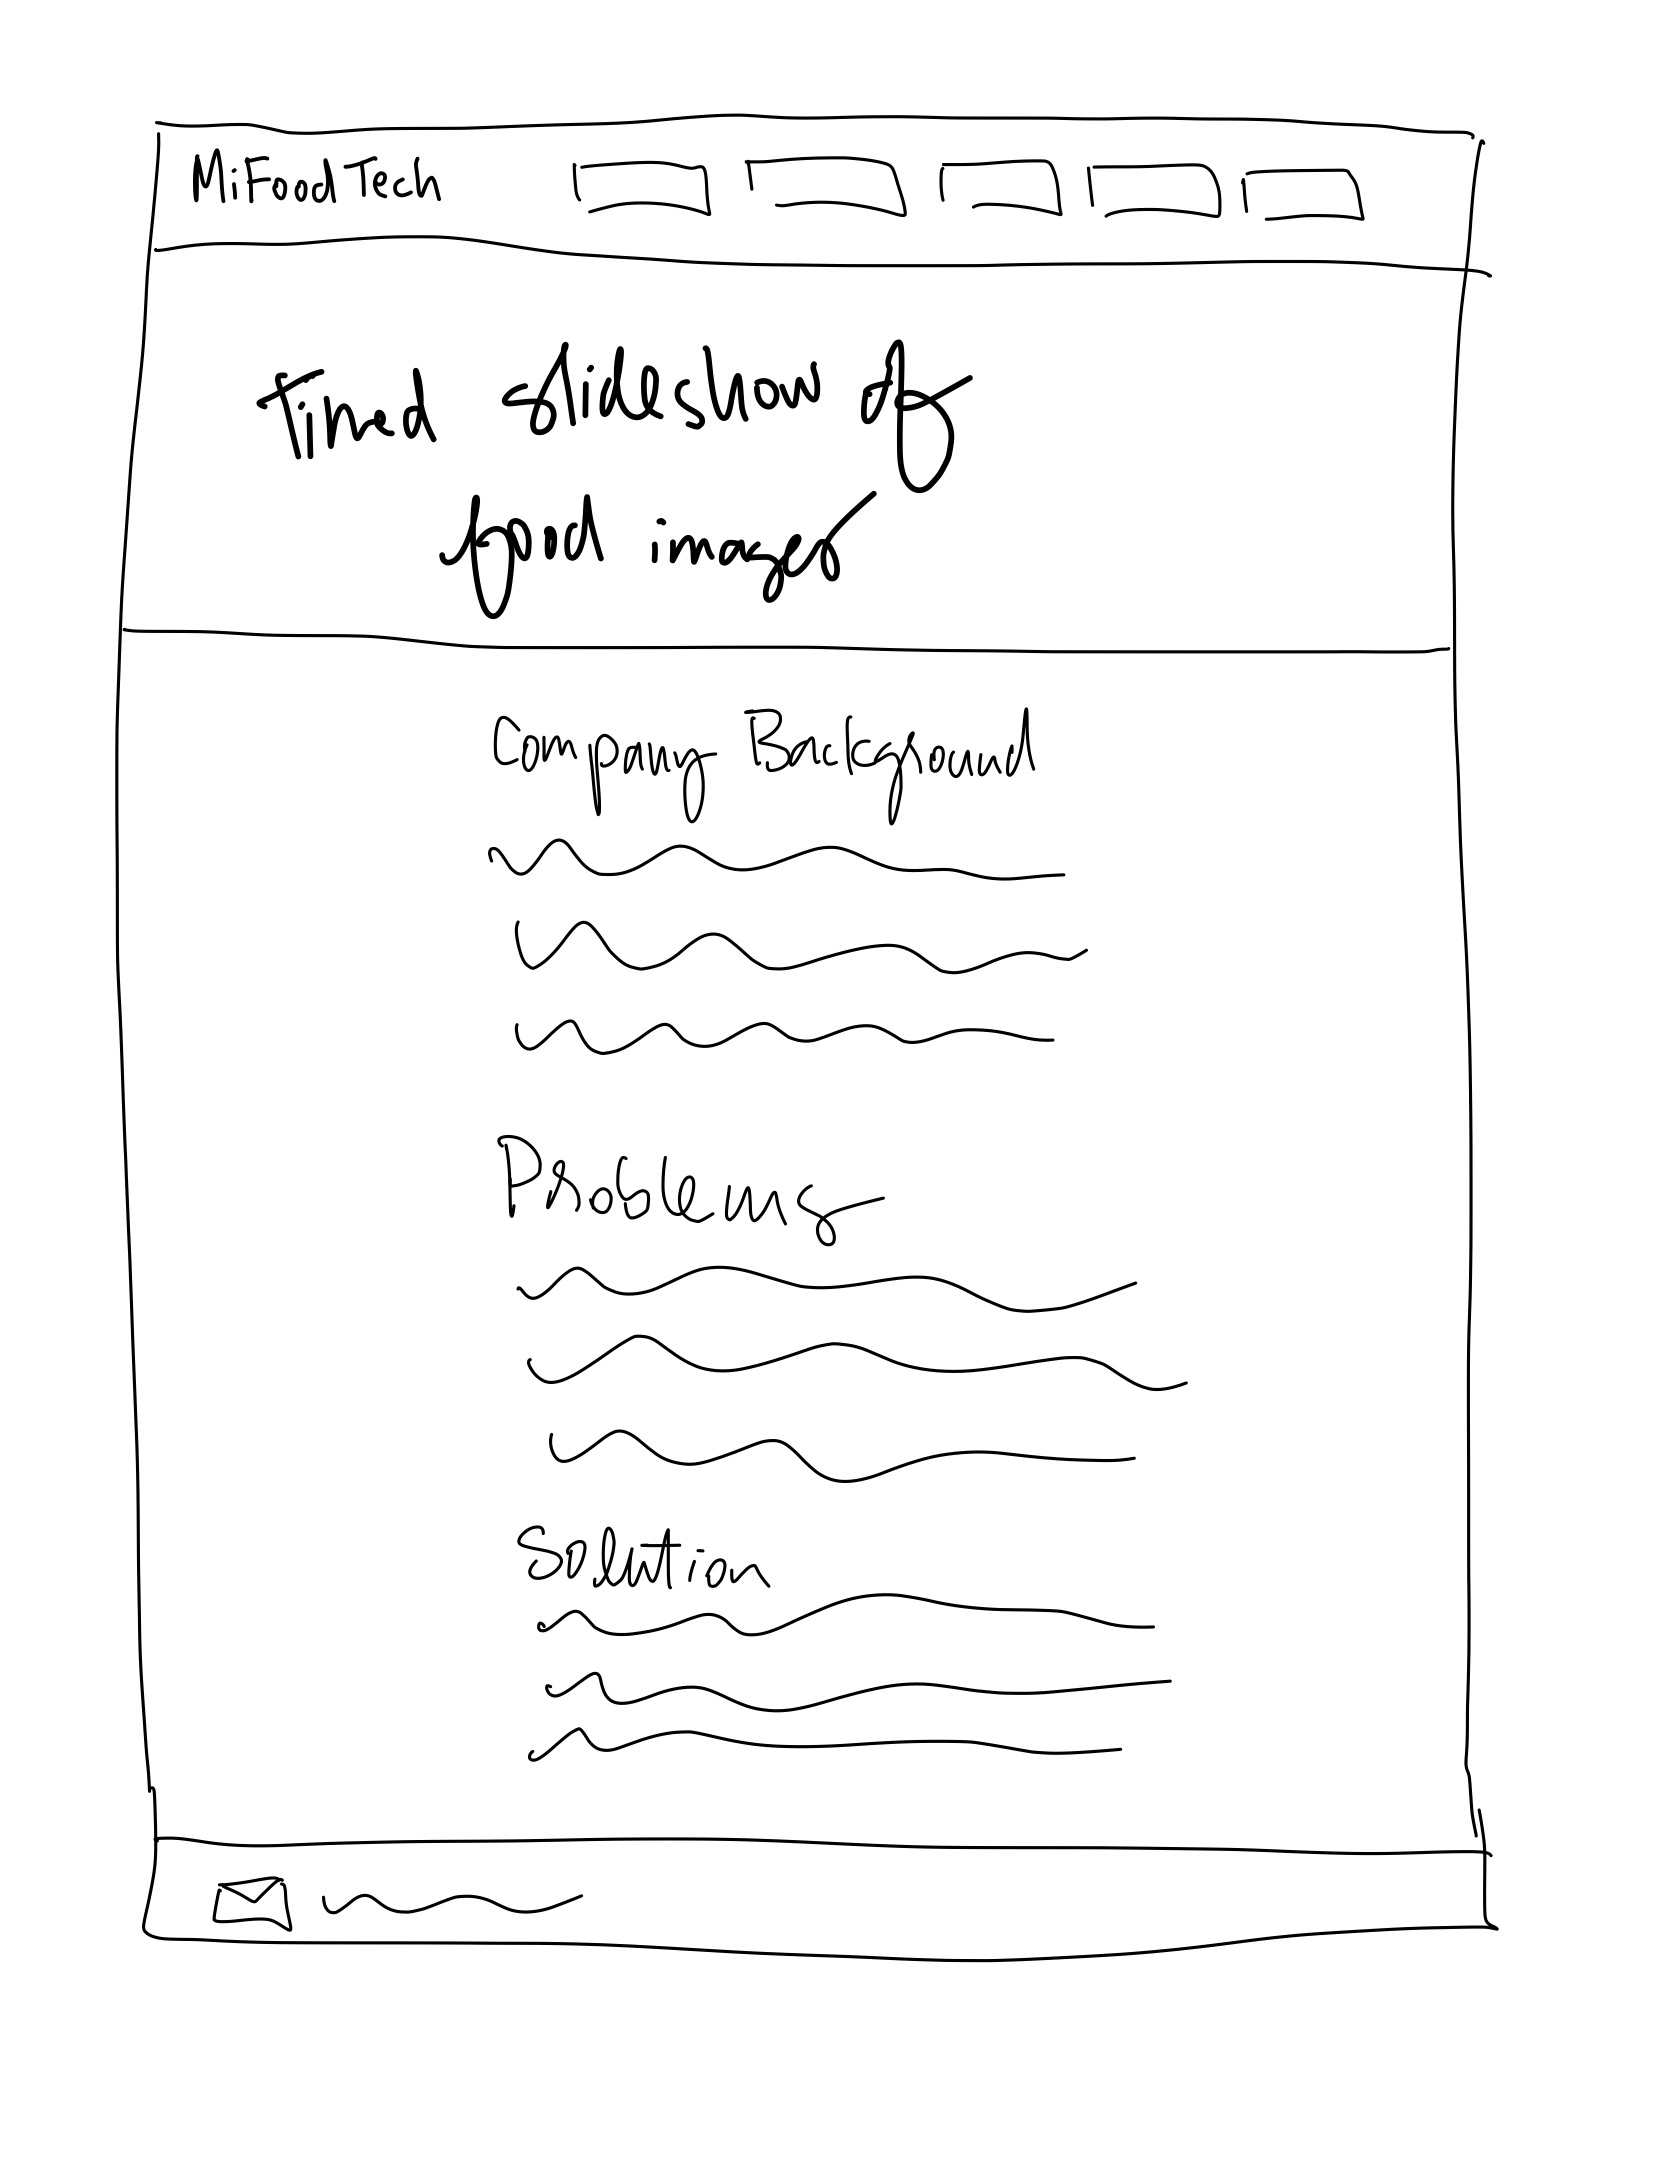 MiFoodTech
Timed slideshow of
food images
Company Background
Problems
Solution